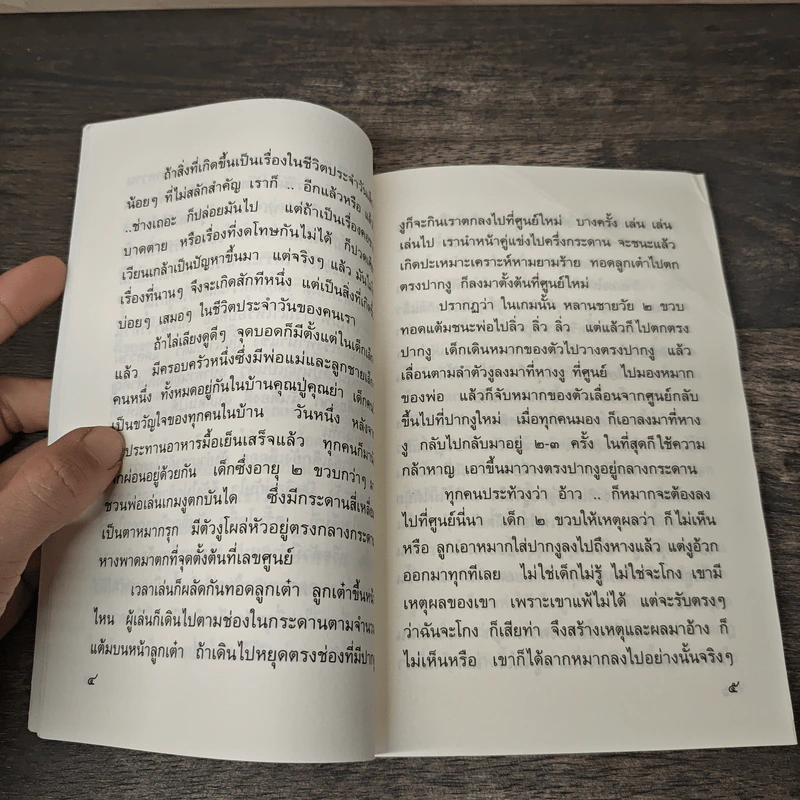 ถ้าสิ่งที่เกิดขึ้นเป็นเรื่องในชีวิตประจำวัน
น้อยๆ ที่ไม่สลักสำคัญ เราก็ .. อีกแล้วหรือ
..ช่างเถอะ ก็ปล่อยมันไป แต่ถ้าเป็นเรื่อง
บาดตาย หรือเรื่องที่งดโทษกันไม่ได้ ก็
เวียนเกล้าเป็นปัญหาขึ้นมา แต่จริงๆ แล้ว
เรื่องที่นานๆ จึงจะเกิดสักทีหนึ่ง แต่เป็นสิ่งที่
บ่อยๆ เสมอๆ ในชีวิตประจำวันของคนเรา
ถ้าไล่เลียงดูดีๆ จุดบอดก็มีตั้งแต่ในเด็ก
แล้ว มีครอบครัวหนึ่งซึ่งมีพ่อแม่และลูกชาย
คนหนึ่ง ทั้งหมดอยู่กันในบ้านคุณปู่คุณย่า
เป็นขวัญใจของทุกคนในบ้าน วันหนึ่ง
ประทานอาหารมื้อเย็นเสร็จแล้ว ทุกคนก็มา
ผ่อนอยู่ด้วยกัน เด็กซึ่งอายุ ๒ ขวบกว่าๆ
ชวนพ่อเล่นเกมงูตกบันได ซึ่งมีกระดาน
เป็นตาหมากรุก มีตัวงูโผล่หัวอยู่ตรงกลาง
หางพาดมาตกที่จุดตั้งต้นที่เลขศูนย์
เวลาเล่นก็ผลัดกันทอดลูกเต๋า ลูกเต๋าขึ้น
ไหน ผู้เล่นก็เดินไปตามช่องในกระดานตาม
แต้มบนหน้าลูกเต๋า ถ้าเดินไปหยุดตรงช่องที่มี
๔
งูก็จะกินเราตกลงไปที่ศูนย์ใหม่ บางครั้ง เล่น เล่น
เล่นไป เรานำหน้าคู่แข่งไปครึ่งกระดาน จะชนะแล้ว
เกิดปะเหมาะเคราะห์หามยามร้าย ทอดลูกเต๋าไปตก
ตรงปากงู ก็ลงมาตั้งต้นที่ศูนย์ใหม่
ปรากฏว่า ในเกมนั้น หลานชายวัย ๒ ขวบ
ทอดแต้มชนะพ่อไปลิ่ว ลิ่ว ลิ่ว แต่แล้วก็ไปตกตรง
ปากงู เด็กเดินหมากของตัวไปวางตรงปากงู แล้ว
เลื่อนตามลำตัวงูลงมาที่หางงู ที่ศูนย์ ไปมองหมาก
ของพ่อ แล้วก็จับหมากของตัวเลื่อนจากศูนย์กลับ
ขึ้นไปที่ปากงูใหม่ เมื่อทุกคนมอง ก็เอาลงมาที่หาง
งู กลับไปกลับมาอยู่ ๒-๓ ครั้ง ในที่สุดก็ใช้ความ
กล้าหาญ เอาขึ้นมาวางตรงปากงูอยู่กลางกระดาน
ทุกคนประท้วงว่า อ้าว .. ก็หมากจะต้องลง
ไปที่ศูนย์นี่นา เด็ก ๒ ขวบให้เหตุผลว่า ก็ไม่เห็น
หรือ ลูกเอาหมากใส่ปากงูลงไปถึงหางแล้ว แต่งูอ้วก
ออกมาทุกทีเลย ไม่ใช่เด็กไม่รู้ ไม่ใช่จะโกง เขามี
เหตุผลของเขา เพราะเขาแพ้ไม่ได้ แต่จะรับตรงๆ
ว่าฉันจะโกง ก็เสียท่า จึงสร้างเหตุและผลมาอ้าง ก็
ไม่เห็นหรือ เขาก็ได้ลากหมากลงไปอย่างนั้นจริงๆ
๕